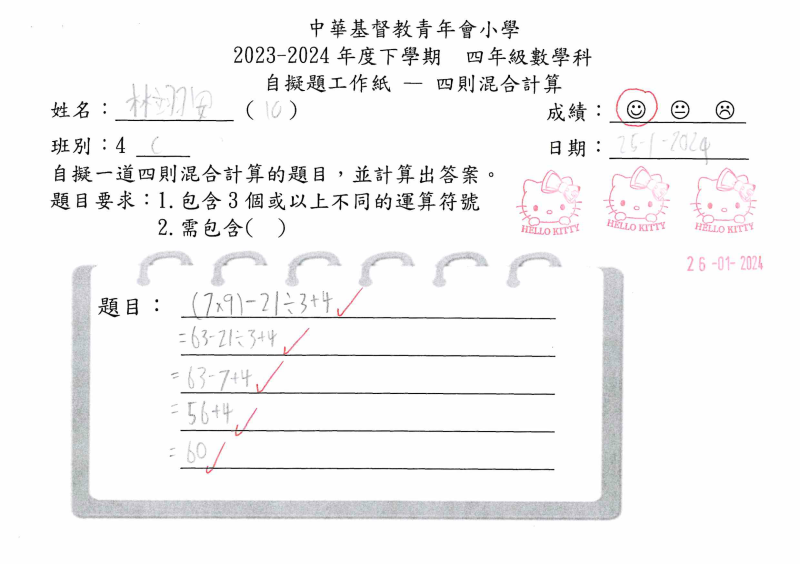 中華基督教青年會小學
2023-2024 年度下學期 四年級數學科
自擬題工作紙 — 四則混合計算
姓名：林翊 (10) 成績：
班別：4 C 日期：25-1-2024
自擬一道四則混合計算的題目，並計算出答案。
題目要求：1. 包含 3 個或以上不同的運算符號
2. 需包含( )
HELLO KITTY HELLO KITTY HELLO KITTY
26-01-2024
題目： (7×9)-21÷3+4
=63-21÷3+4
=63-7+4
=56+4
=60